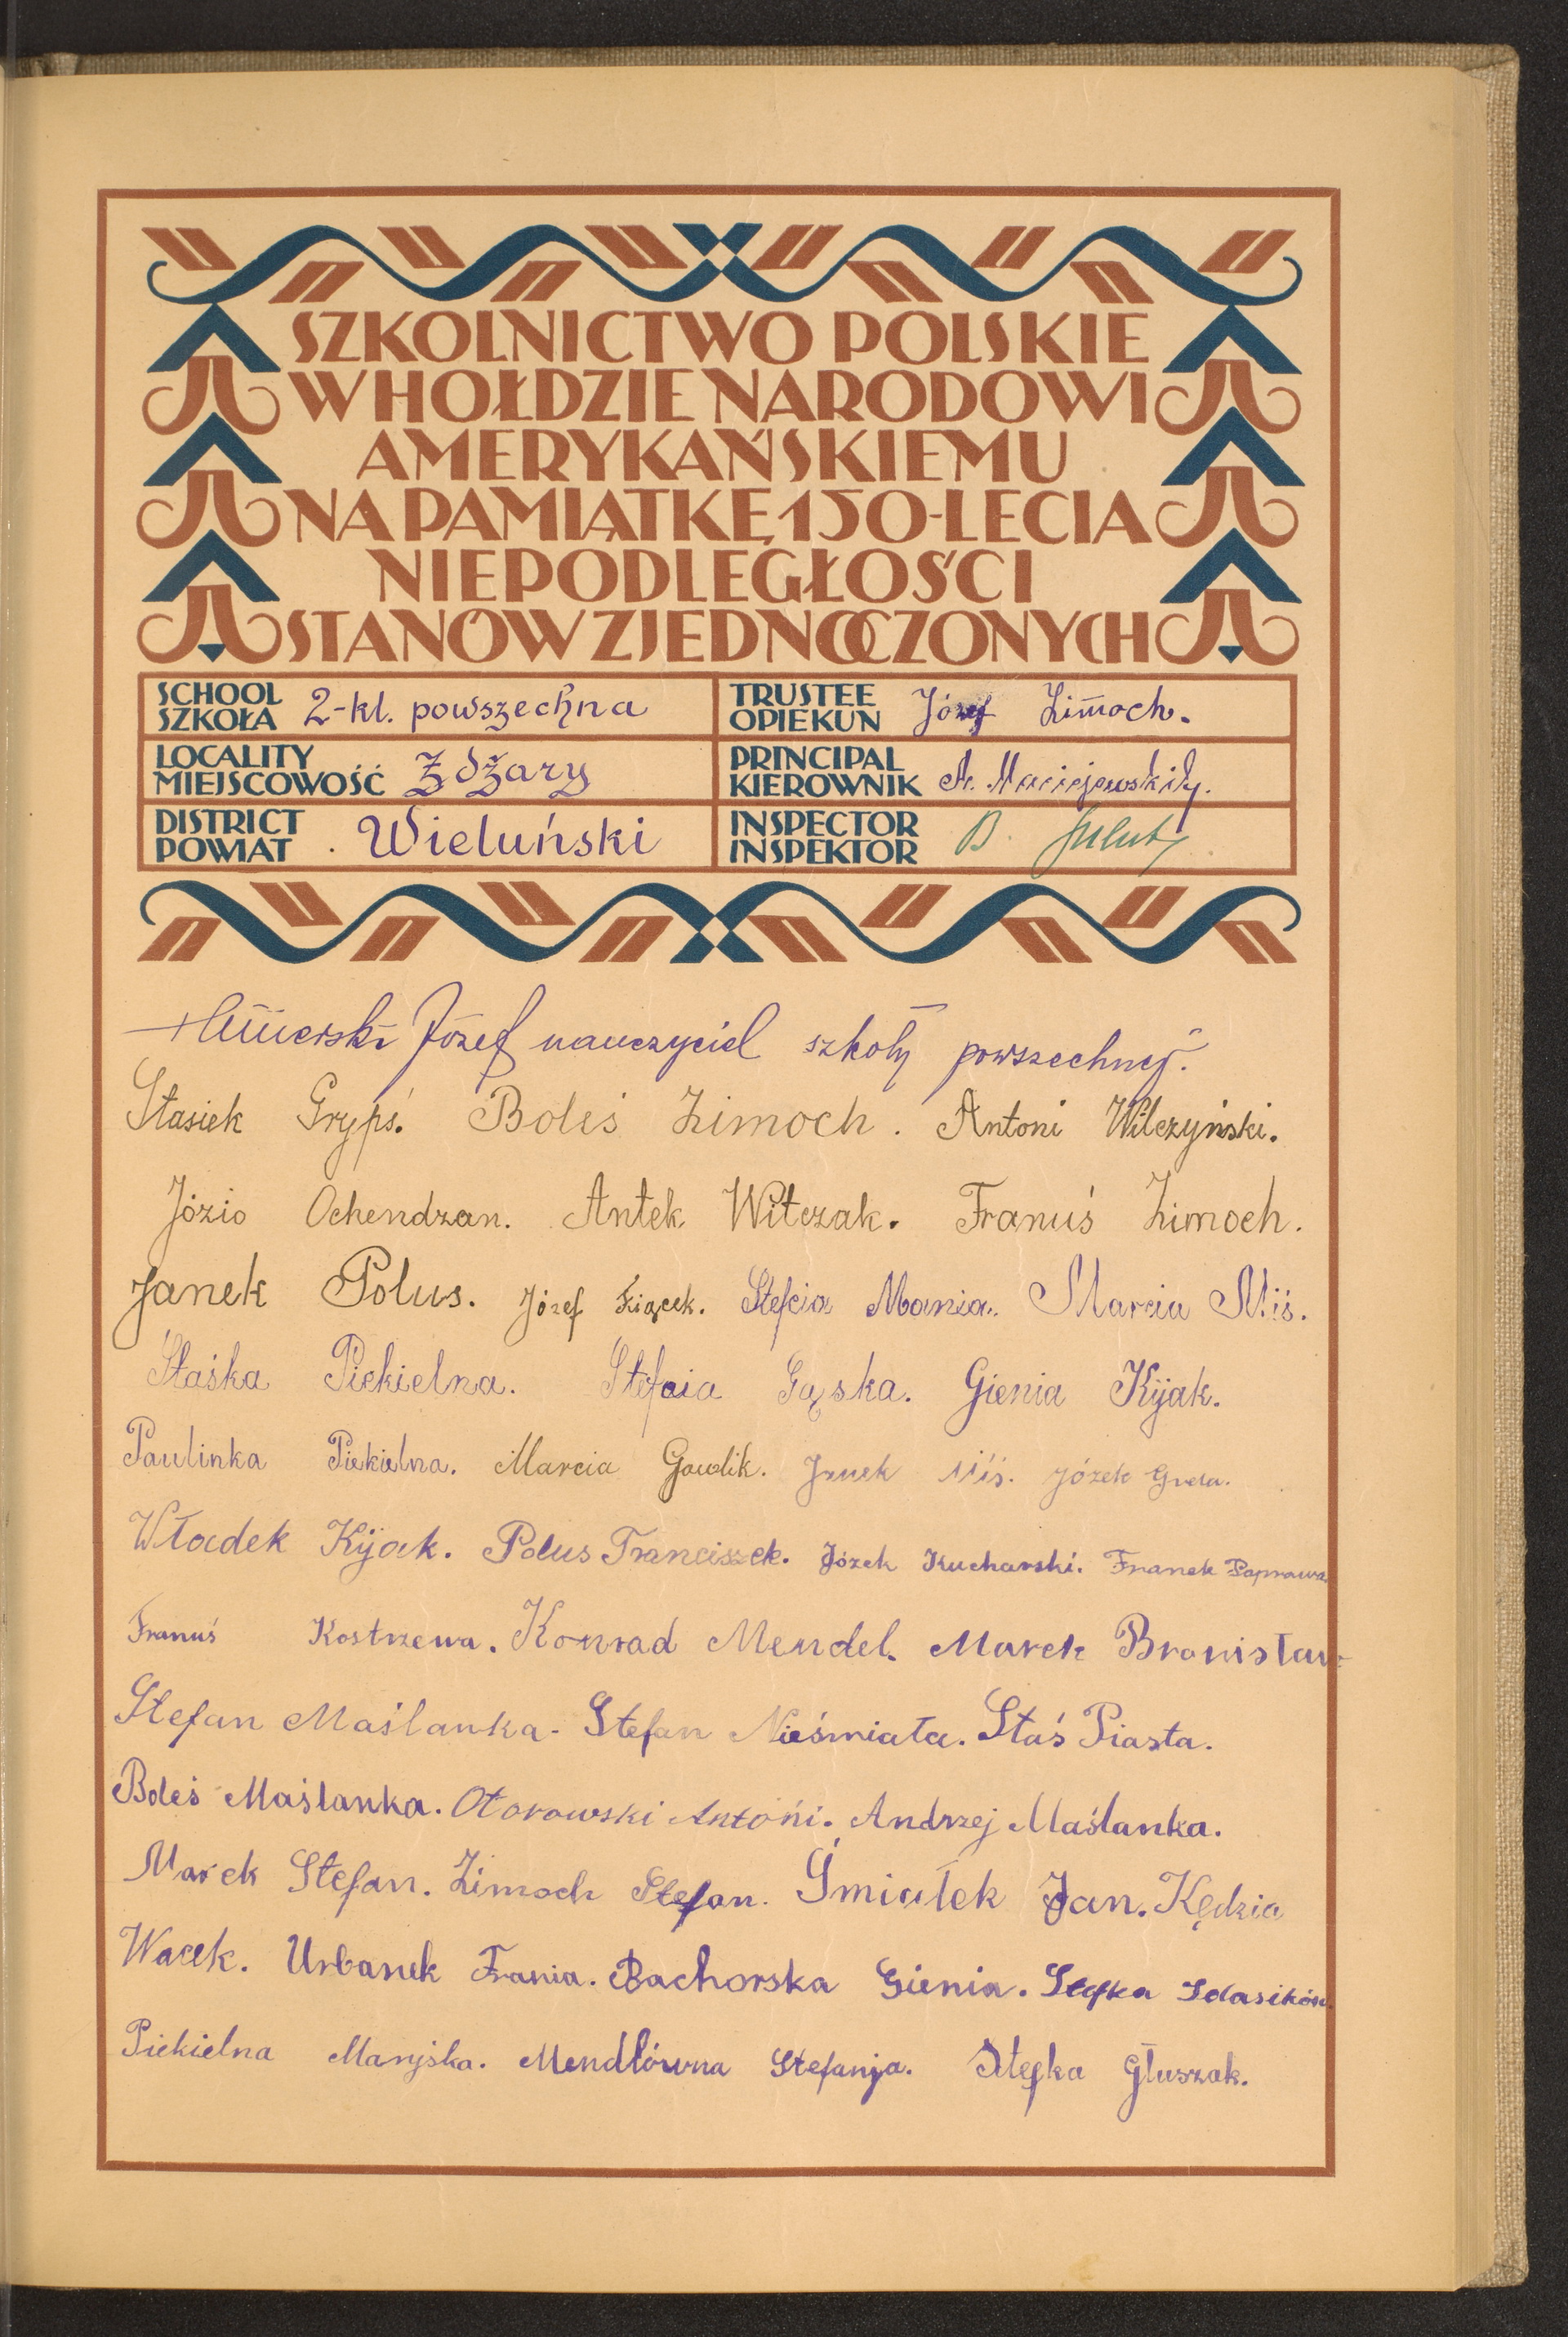 SZKOLNICTWO POLSKIE
W HOŁDZIE NARODOWI
AMERYKAŃSKIEMU
NA PAMIĄTKĘ 150-LECIA
NIEPODLEGŁOŚCI
STANÓW ZJEDNOCZONYCH
SCHOOL
SZKOŁA 2-kl. powszechna
TRUSTEE
OPIEKUN Józef Zimoch.
LOCALITY
MIEJSCOWOŚĆ Żdżary
PRINCIPAL
KIEROWNIK
DISTRICT
POWIAT Wieluński
INSPECTOR
INSPEKTOR B.
Józef nauczyciel szkoły powszechnej.
Stasiek Gryps. Boleś Zimoch. Antoni Wilczyński.
Józio Ochendzan. Antek Witczak. Franuś Zimoch.
Janek Polus. Józef Ziącek. Stefcia Mania. Marcia Miś.
Staśka Piekielna. Stefcia Gąska. Gienia Kijak.
Paulinka Piekielna. Marcia Gawlik. Janek Miś. Józek Grela.
Władek Kijak. Polus Franciszek. Józek Kucharski. Franek Paprawa.
Franuś Kostrzewa. Konrad Mendel. Marek Bronisław
Stefan Maślanka. Stefan Nieśmiała. Staś Piasta.
Boleś Maślanka. Otorowski Antoni. Andrzej Maślanka.
Marek Stefan. Zimoch Stefan. Śmiałek Jan. Kędzia
Wacek. Urbanek Frania. Bachorska Gienia. Stefka
Piekielna Maryśka. Mendlówna Stefanja. Stefka Głuszak.